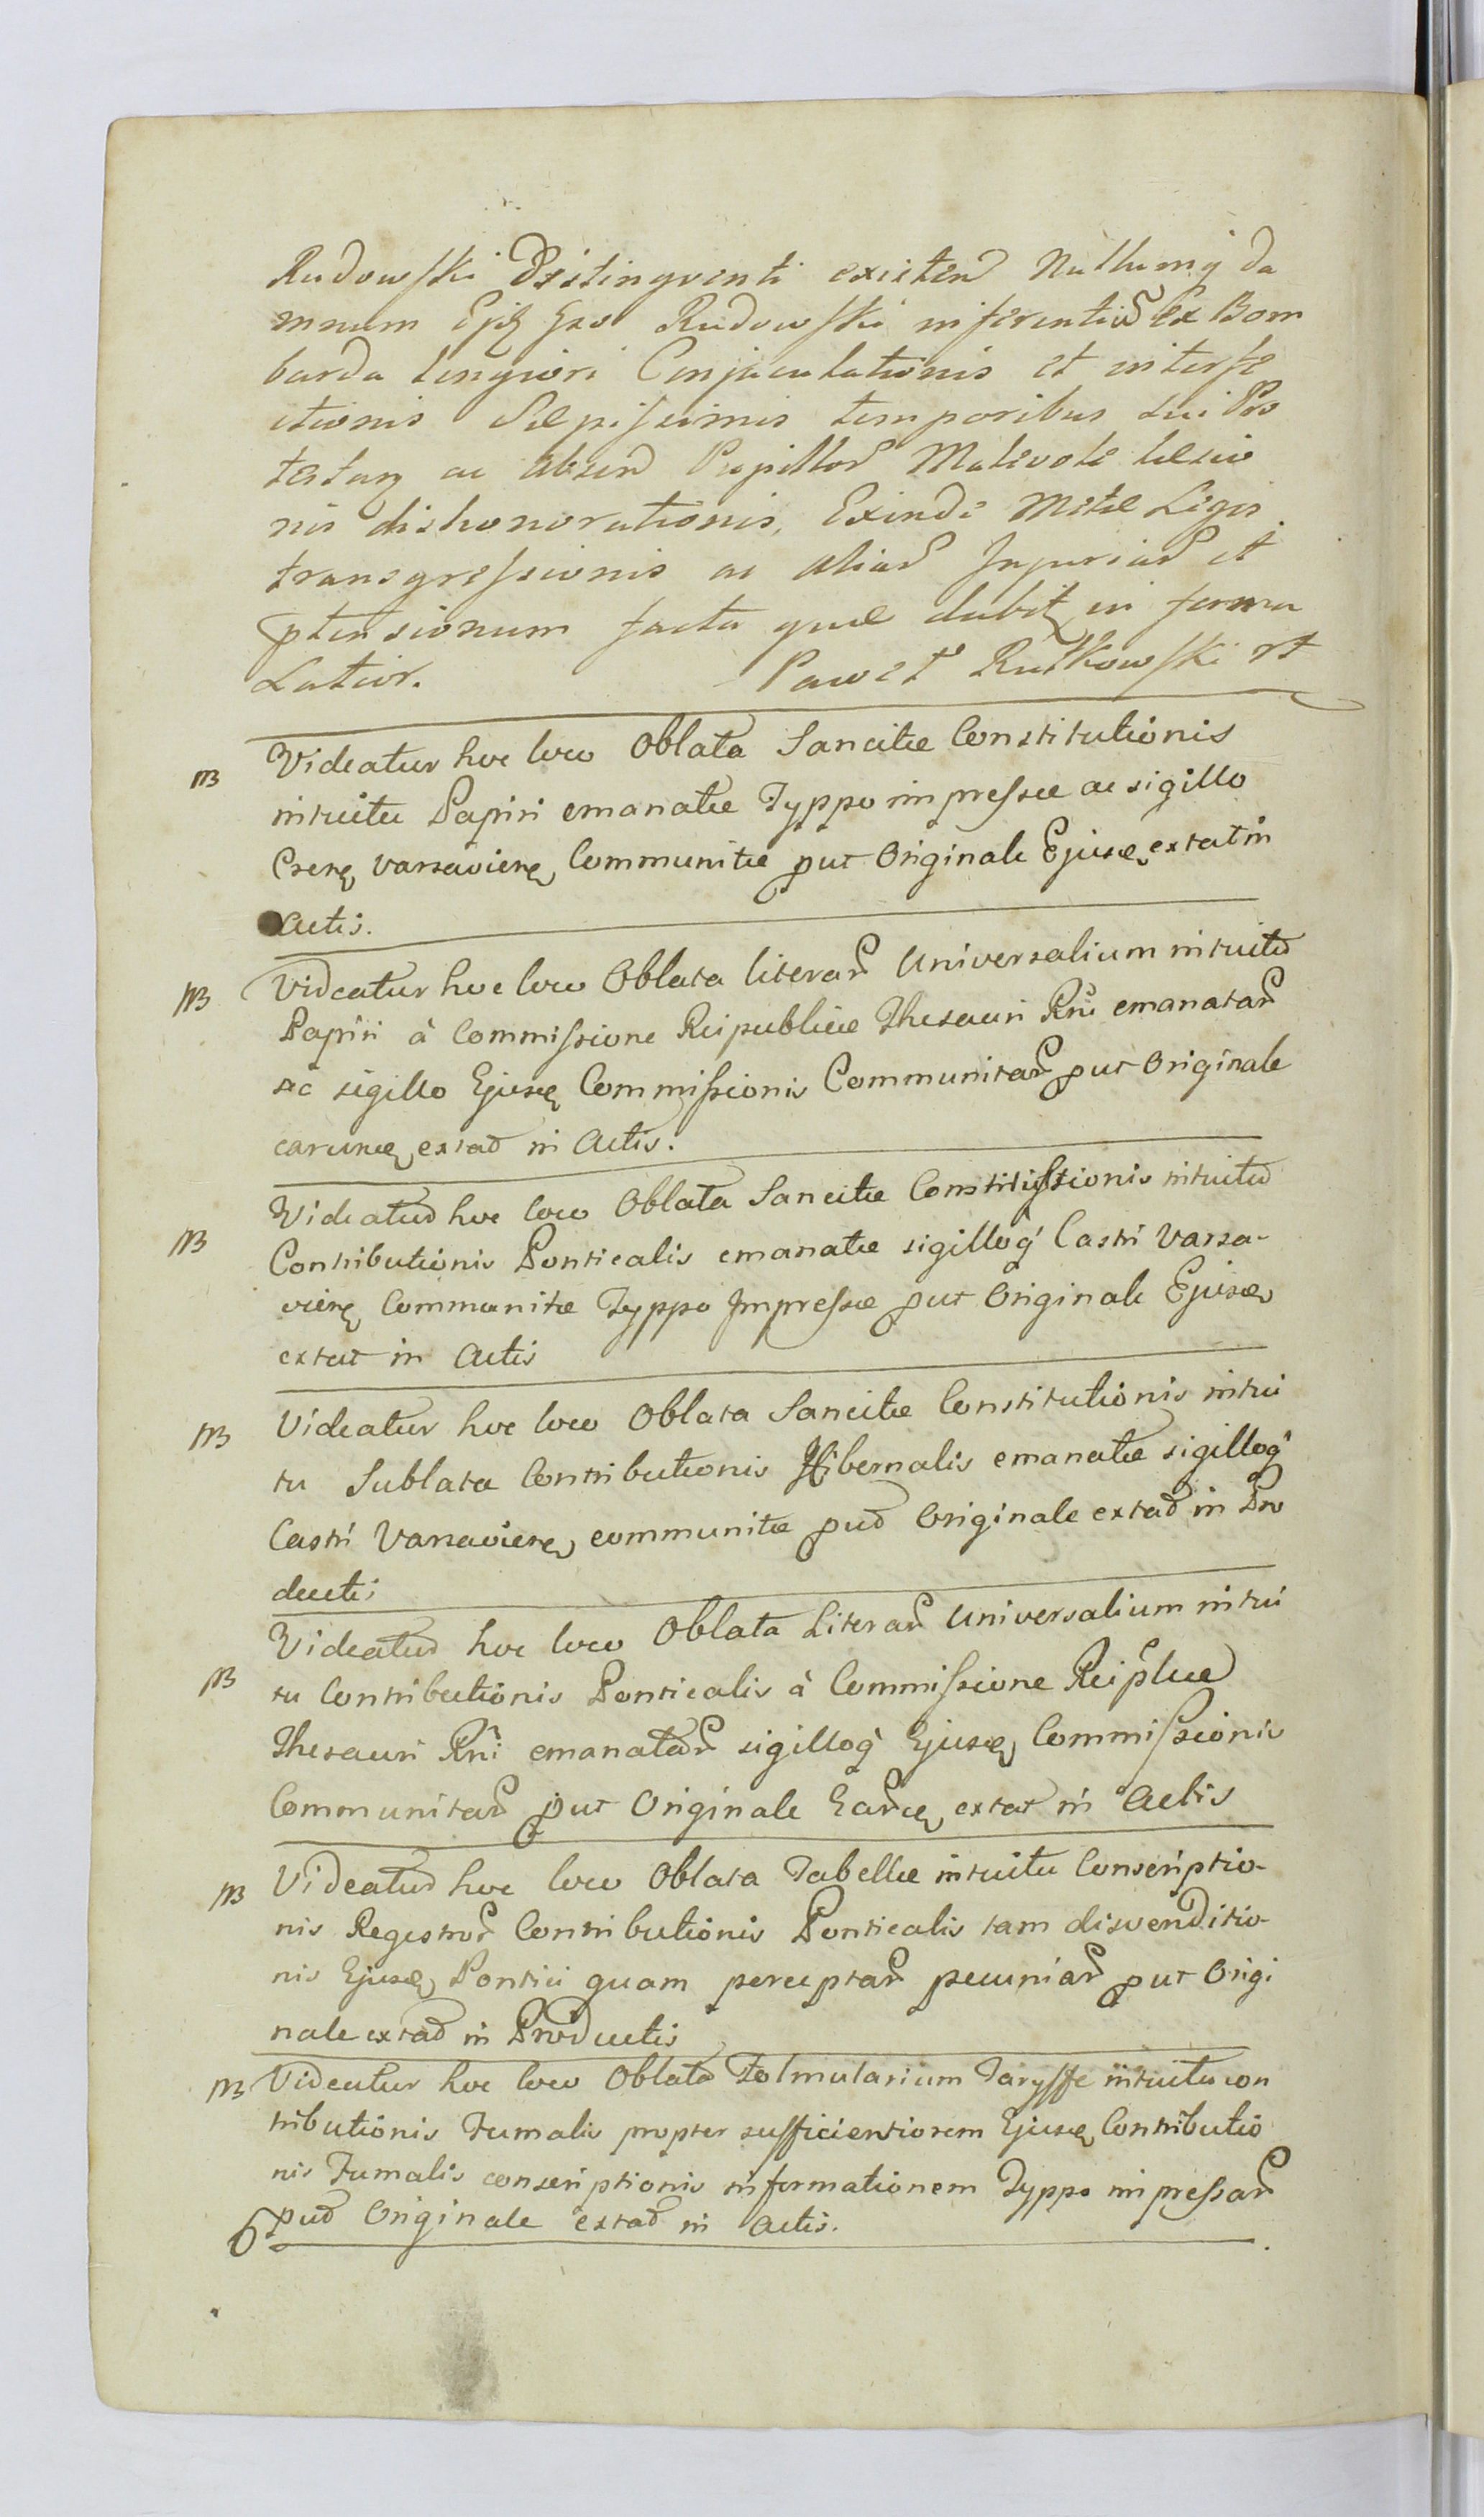 Rudowski Distingventi existen Nullumq da
mnum Ejq Gro Rudowski inferentis Ex Bom
barda longiori Conjaculationis et interfe
ctionis Sæpissimis temporibus sui Pro
testan ac absen Pupillor Malevole læsio
nis dishonorationis, Exinde Metæ Legis
transgressionis ac aliar Injuriar et
ptensionum facta quæ dabit in forma
Latior. Paweł Rutkowski rt
NB Videatur hoc loco Oblata Sancitæ Constitutionis
intuitu Papiri emanatæ Typpo impressæ ac sigillo
Csenę Varsavienę Communitæ put Originale Ejusę extat in
Actis.
NB Videatur hoc loco Oblata Literar Universalium intuitu
Papiri à Commissione Reipublicæ Thesauri Rni emanatar
ac sigillo Ejusę Commissionis Communitar put Originale
earumę extat in Actis.
NB Videatur hoc loco Oblata Sancitæ Constitustionis intuitu
Contributionis Ponticalis emanatæ sigilloq Castri Varsa-
vienę Communitæ Typpo Impressæ put Originale Ejusę
extat in Actis
NB Videatur hoc loco Oblata Sancitæ Constitutionis intui
tu Sublata Contributionis Hibernalis emanatæ sigilloq
Castri Varsavienę communitæ put Originale extat in Pro
ductis
NB Videatur hoc loco Oblata Literar Universalium intui
tu Contributionis Ponticalis à Commissione Reiplicæ
Thesauri Rni emanatar sigilloq Ejusę Commissionis
Communitar put Originale Earuę extat in Actis
NB Videatur hoc loco Oblata Tabellæ intuitu Conscriptio-
nis Regestror Contributionis Ponticalis tam disvenditio-
nis Ejusę Pontici quam perceptar pecuniar put Origi
nale extat in Productis
NB Videatur hoc loco Oblata Folmularium Taryffe intuitu con
tributionis Fumalis propter sufficientiorem Ejusę Contributio
nis Fumalis conscriptionis informationem Typpo impressar
put Originale extat in Actis.